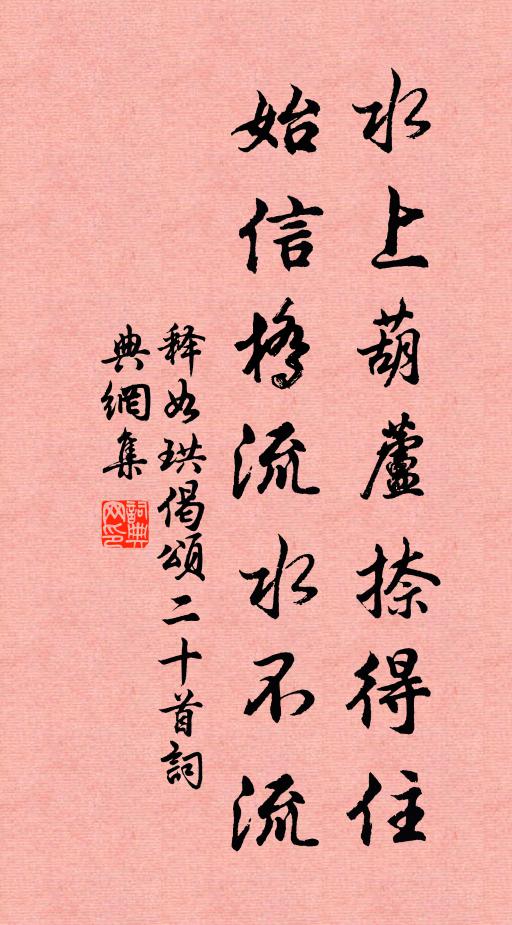 水上葫蘆捺得住
始信橋流水不流
释如珙偈頌二十首詞
典網集
詞典网印